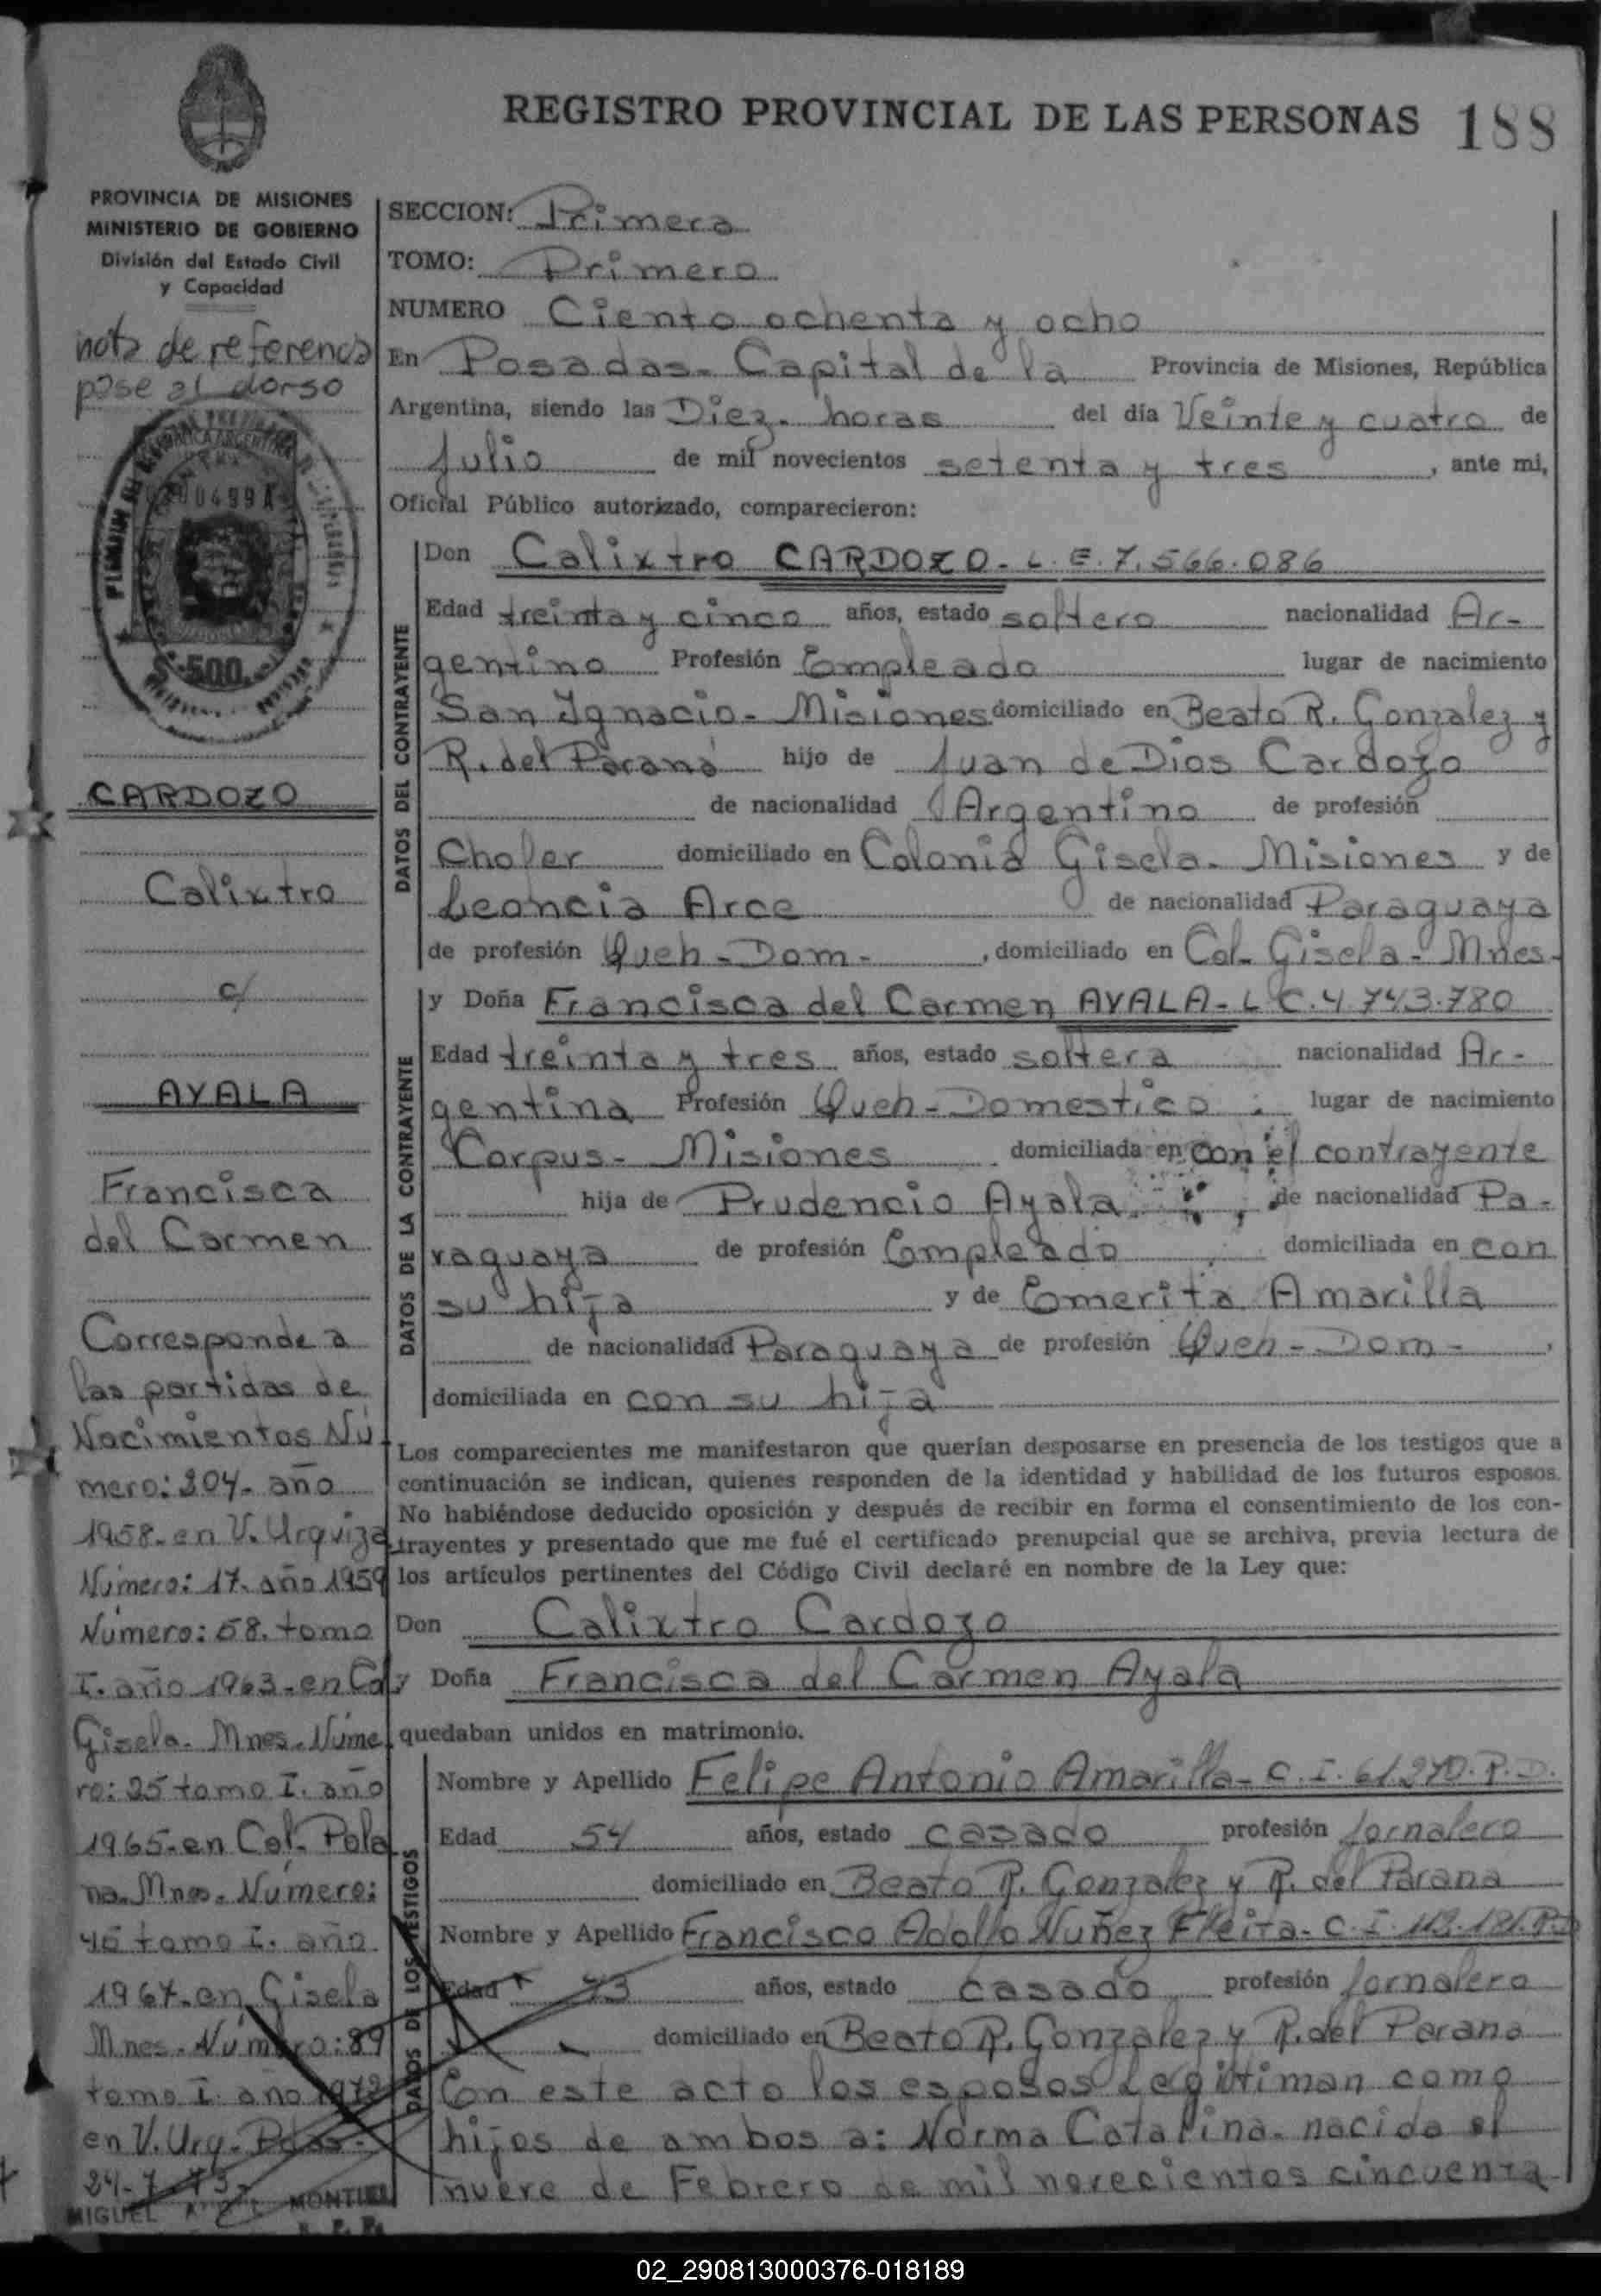 REGISTRO PROVINCIAL DE LAS PERSONAS 188
PROVINCIA DE MISIONES
MINISTERIO DE GOBIERNO
División del Estado Civil
y Capacidad
nota de referencia
pase al dorso
REPUBLICA ARGENTINA
0499A
$ 500
CARDOZO
Calixtro
c/
AYALA
Francisca
del Carmen
Corresponde a
las partidas de
Nacimientos Nú
mero: 204. año
1958. en V. Urquiza
Número: 17. año 1959
Número: 58. tomo
I. año 1963. en Col
Gisela. Mnes. Núme
ro: 25 tomo I. año
1965. en Col. Pola
na. Mnes. Número:
46 tomo I. año
1967. en Gisela
Mnes. Número: 89
tomo I. año 1972
en V. Urq. Pdas.
24-7-73.
MIGUEL MONTIEL
SECCION: Primera
TOMO: Primero
NUMERO Ciento ochenta y ocho
En Posadas. Capital de la Provincia de Misiones, República
Argentina, siendo las Diez. horas del día Veinte y cuatro de
Julio de mil novecientos setenta y tres, ante mi,
Oficial Público autorizado, comparecieron:
DATOS DEL CONTRAYENTE
Don Calixtro CARDOZO. L.E. 7.566.086
Edad treinta y cinco años, estado soltero nacionalidad Ar-
gentino Profesión Empleado lugar de nacimiento
San Ignacio. Misiones domiciliado en Beato R. Gonzalez y
R. del Paraná hijo de Juan de Dios Cardozo
de nacionalidad Argentino de profesión
Chofer domiciliado en Colonia Gisela. Misiones y de
Leoncia Arce de nacionalidad Paraguaya
de profesión Queh-Dom-, domiciliado en Col. Gisela. Mnes.
DATOS DE LA CONTRAYENTE
y Doña Francisca del Carmen AYALA. L C. 4.743.780
Edad treinta y tres años, estado soltera nacionalidad Ar-
gentina Profesión Queh-Domestico. lugar de nacimiento
Corpus. Misiones domiciliada en con el contrayente
hija de Prudencio Ayala. de nacionalidad Pa-
raguaya de profesión Empleado domiciliada en con
su hija y de Emerita Amarilla
de nacionalidad Paraguaya de profesión Queh-Dom-,
domiciliada en con su hija
Los comparecientes me manifestaron que querían desposarse en presencia de los testigos que a
continuación se indican, quienes responden de la identidad y habilidad de los futuros esposos.
No habiéndose deducido oposición y después de recibir en forma el consentimiento de los con-
trayentes y presentado que me fué el certificado prenupcial que se archiva, previa lectura de
los artículos pertinentes del Código Civil declaré en nombre de la Ley que:
Don Calixtro Cardozo
y Doña Francisca del Carmen Ayala
quedaban unidos en matrimonio.
DATOS DE LOS TESTIGOS
Nombre y Apellido Felipe Antonio Amarilla. C.I. 61.270. P.D.
Edad 54 años, estado casado profesión Jornalero
domiciliado en Beato R. Gonzalez y R. del Parana
Nombre y Apellido Francisco Adolfo Nuñez Fleita. C.I. 113.181. P.D
Edad 43 años, estado casado profesión Jornalero
domiciliado en Beato R. Gonzalez y R. del Parana
Con este acto los esposos Legitiman como
hijos de ambos a: Norma Catalina. nacida el
nueve de Febrero de mil novecientos cincuenta
02_290813000376-018189